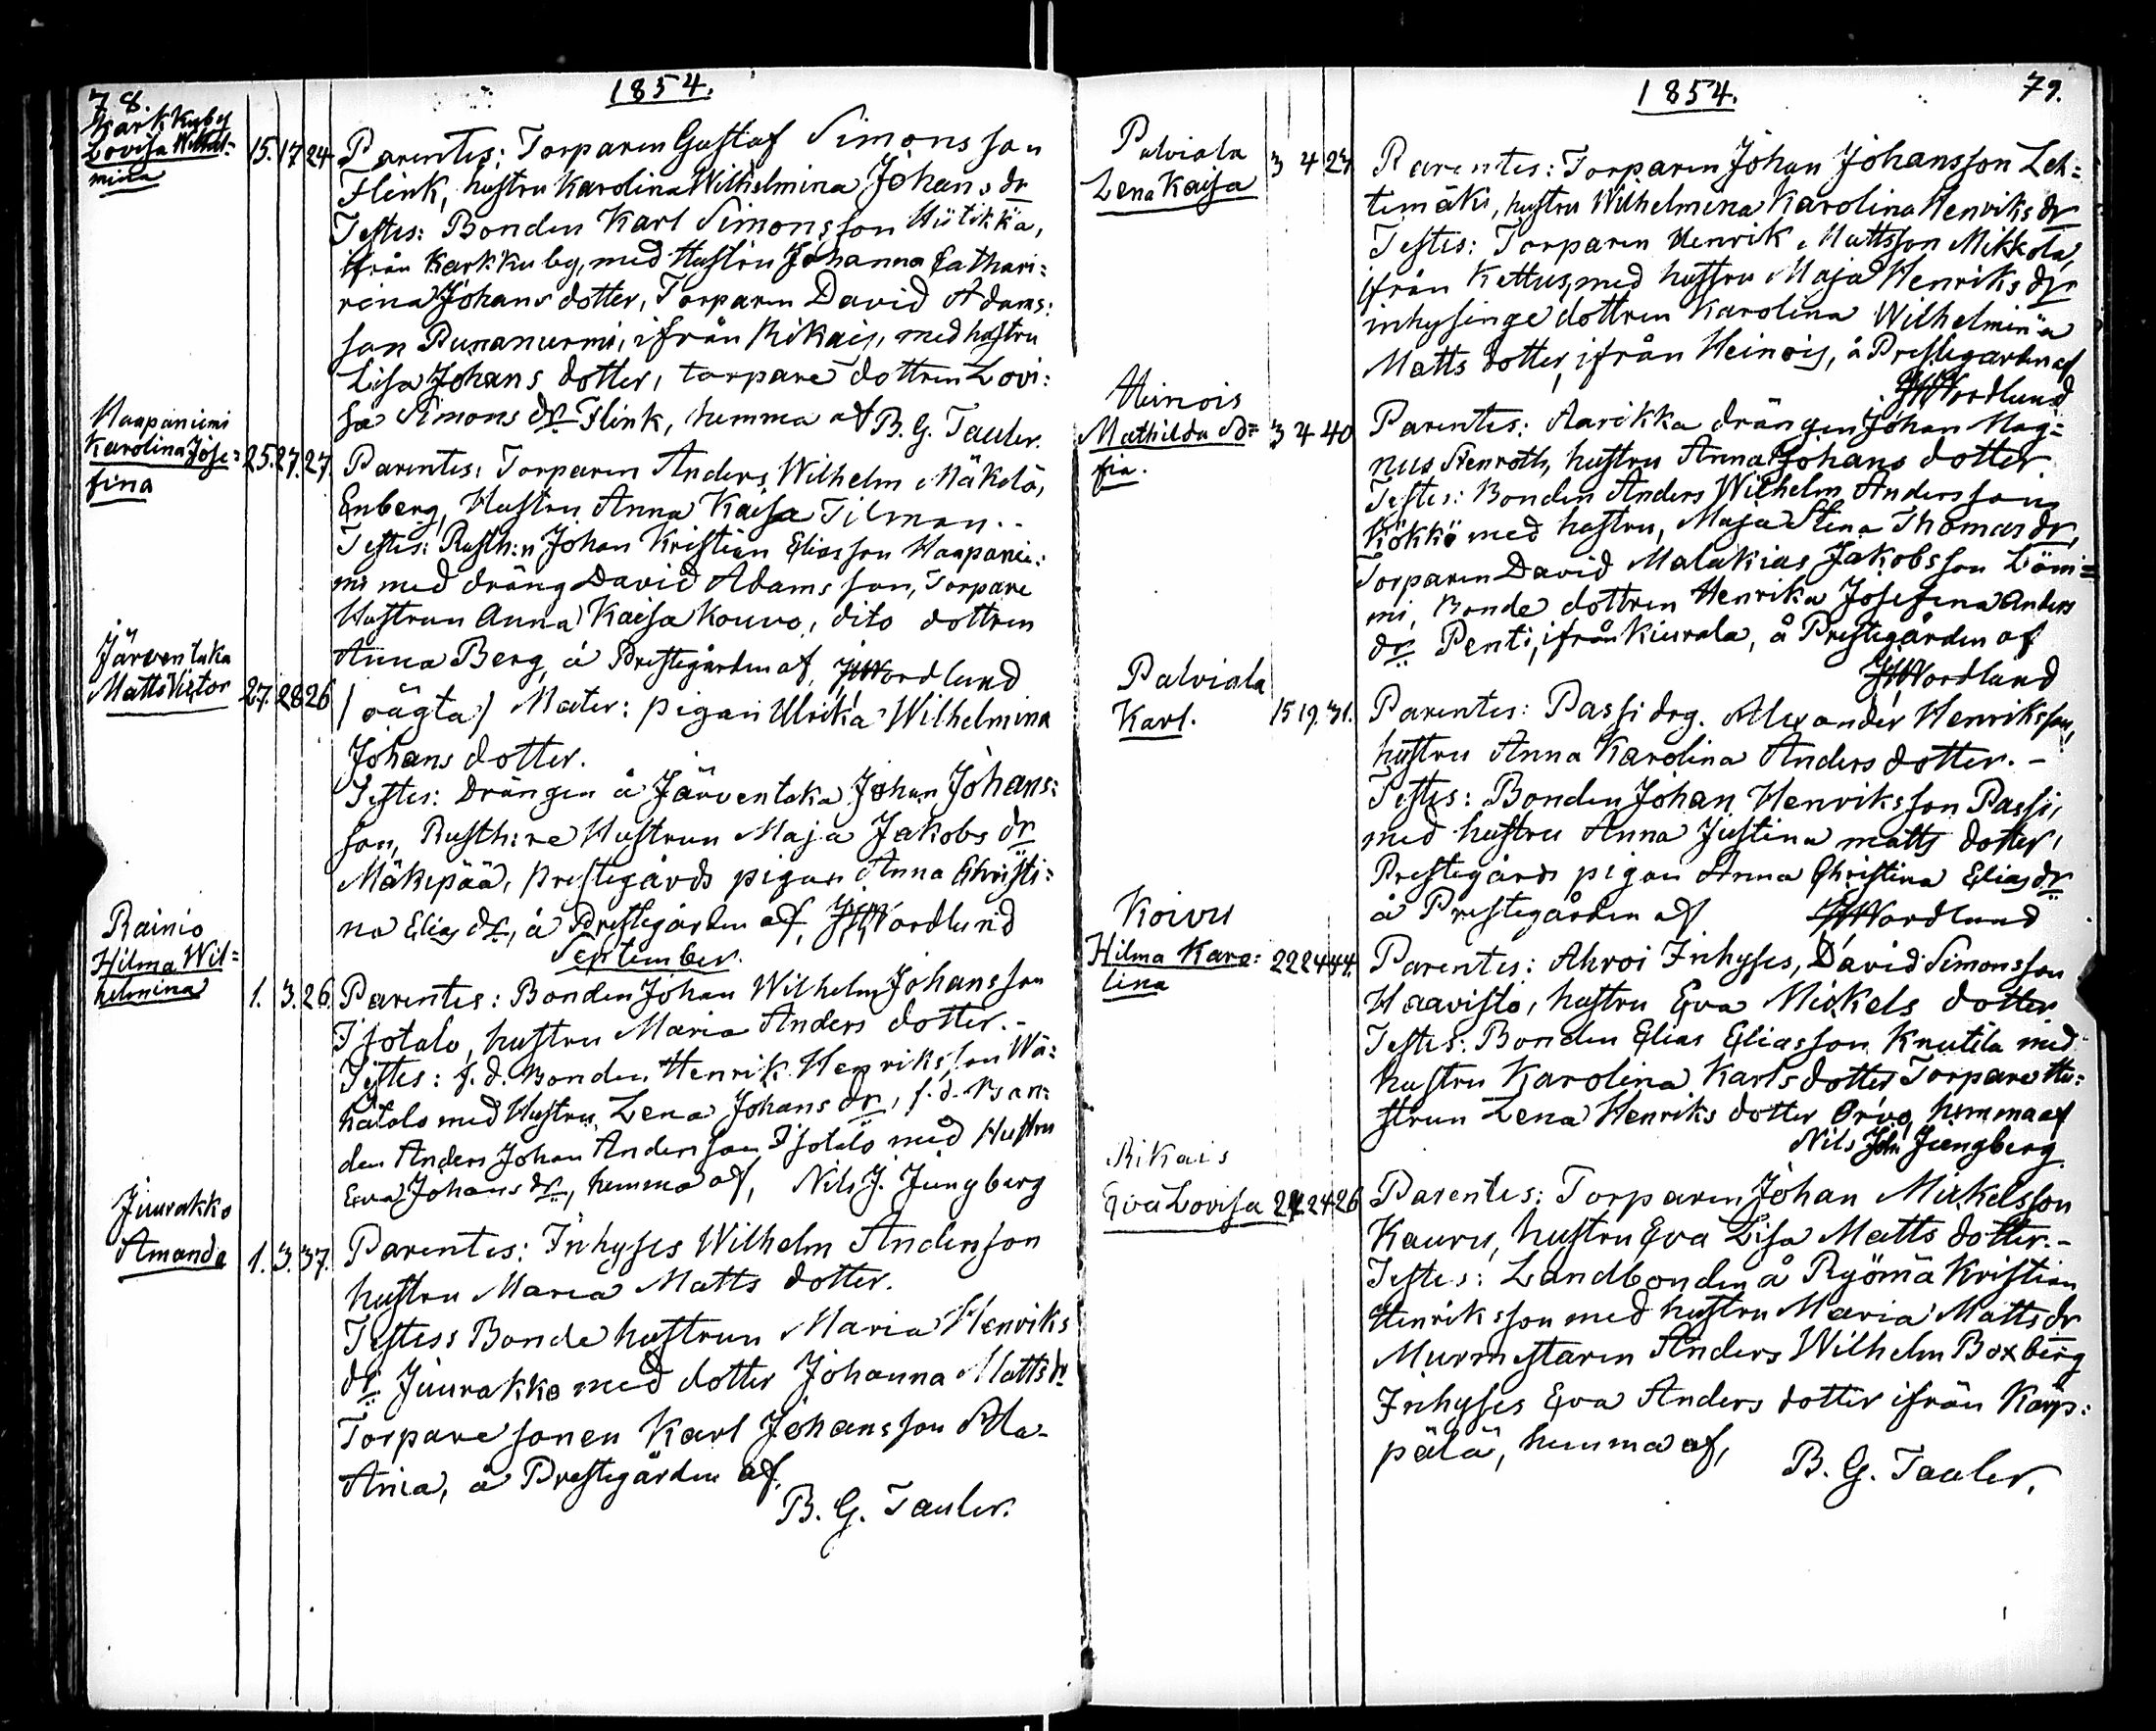 78.
1854.
Karkkuby
Lovisa Wilhel=
mina
15. 17 24
Parentes: Torparen Gustaf Simonsson
Flink, hustru Karolina Wilhelmina Johans dr
Testes: Bonden Karl Simonsson Hiitikkä,
ifrån Karkkuby, med Hustru Johanna Cathari=
rina Johans dotter, Torparen David Adams=
son Punanurmi, ifrån Rikais, med hustru
Lisa Johans dotter, torpare dottren Lovi=
sa Simons dr Flink, hemma af B. G. Tauler.
Haapaniemi
Karolina Jose=
fina
25. 27. 27.
Parentes: Torparen Anders Wilhelm Mäkelä,
Enberg, Hustru Anna Kaisa Tilman..
Testes: Rusth:n Johan Kristian Eliasson Haapanie=
mi med dräng David Adamsson, Torpare
Hustrun Anna Kaisa Kouvo, dito dottren
Anna Berg, å Prestegården af, JWNordlund
Järventaka
Matts Victor
27. 28 26
(oägta) Mater: pigan Ulrika Wilhelmina
Johans dotter.
Testes: Drängen å Järventaka Johan Johans=
son, Rusth:re Hustrun Maja Jakobs dr
Mäkipää, prestegårds pigan Anna Christi=
na Elias dr, å Prestegården af, JWNordlund
September.
Rainio
Hilma Wil=
helmina
1. 3. 26.
Parentes: Bonden Johan Wilhelm Johansson
Isotalo, hustru Maria Anders dotter.-
Testes: f. d. Bonden Henrik Henriksson Wä=
hätalo med Hustru Lena Johans dr, f. d. Bon=
den Anders Johan Andersson Isotalo med Hustru
Eva Johans dr, hemma af, Nils J. Jungberg
Juurakko
Amanda
1. 3. 37.
Parentes: Inhyses Wilhelm Andersson
hustru Maria Matts dotter.
Testess Bonde hustrun Maria Henriks
dr Juurakko med dotter Johanna Matts dr
Torpare sonen Karl Johansson Ala-
Ania, å Prestegården af,
B. G. Tauler.
1854.
79.
Palviala
Lena Kaisa
3 4 23
Parentes: Torparen Johan Johansson Leh=
timäki, hustru Wilhelmina Karolina Henriks dr
Testes: Torparen Henrik Mattsson Mikkola,
ifrån Kettus, med hustru Maja Henriks dr
inhysinge dottren Karolina Wilhelmina
Matts dotter, ifrån Heinois, å Prestegården af
JWNordlund
Heinois
Mathilda So=
fia.
3 4 40
Parentes: Aarikka drängen Johan Mag=
nus Stenroth, hustru Anna Johans dotter.
Testes: Bonden Anders Wilhelm Andersson
Kökkö med hustru, Maja Stina Thomas dr,
Torparen David Malakias Jakobsson Löni=
mi, Bonde dottren Henrika Josefina Anders
dr Penti, ifrån Kiurala, å Prestegården af
JWNordlund
Palviala
Karl.
15 19. 31.
Parentes: Passi drg. Alexander Henriksson,
hustru Anna Karolina Anders dotter.-
Testes: Bonden Johan Henriksson Passi,
med hustru Anna Justina matts dotter,
Prestegårds pigan Anna Christina Elias dr
å Prestegården af JWNordlund
Koivu
Hilma Karo=
lina
22 24 44.
Parentes: Ahroi Inhyses, David Simonsson
Haavisto, hustru Eva Mickels dotter
Testes: Bonden Elias Eliasson Knutila med
hustru Karolina Karls dotter Torpare Hu=
strun Lena Henriks dotter Orvo, hemma af
Nils Joh Jungberg.
Rikais
Eva Lovisa
24 24 26
Parentes: Torparen Johan Mickelsson
Kauru, hustru Eva Lisa Matts dotter.-
Testes: Landbonden å Ryömä Kristian
Henriksson med hustru Maria Matts dr
Murmestaren Anders Wilhelm Boxberg
Inhyses Eva Anders dotter ifrån Kärp=
pälä, hemma af,
B. G. Tauler.